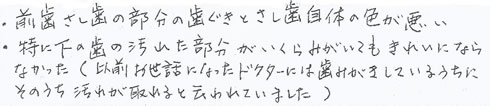 ・前歯さし歯の部分の歯ぐきとさし歯自体の色が悪い
・特に下の歯の汚れた部分がいくらみがいてもきれいになら
なかった（以前お世話になったドクターには歯みがきしているうちに
そのうち汚れが取れると云われていました）